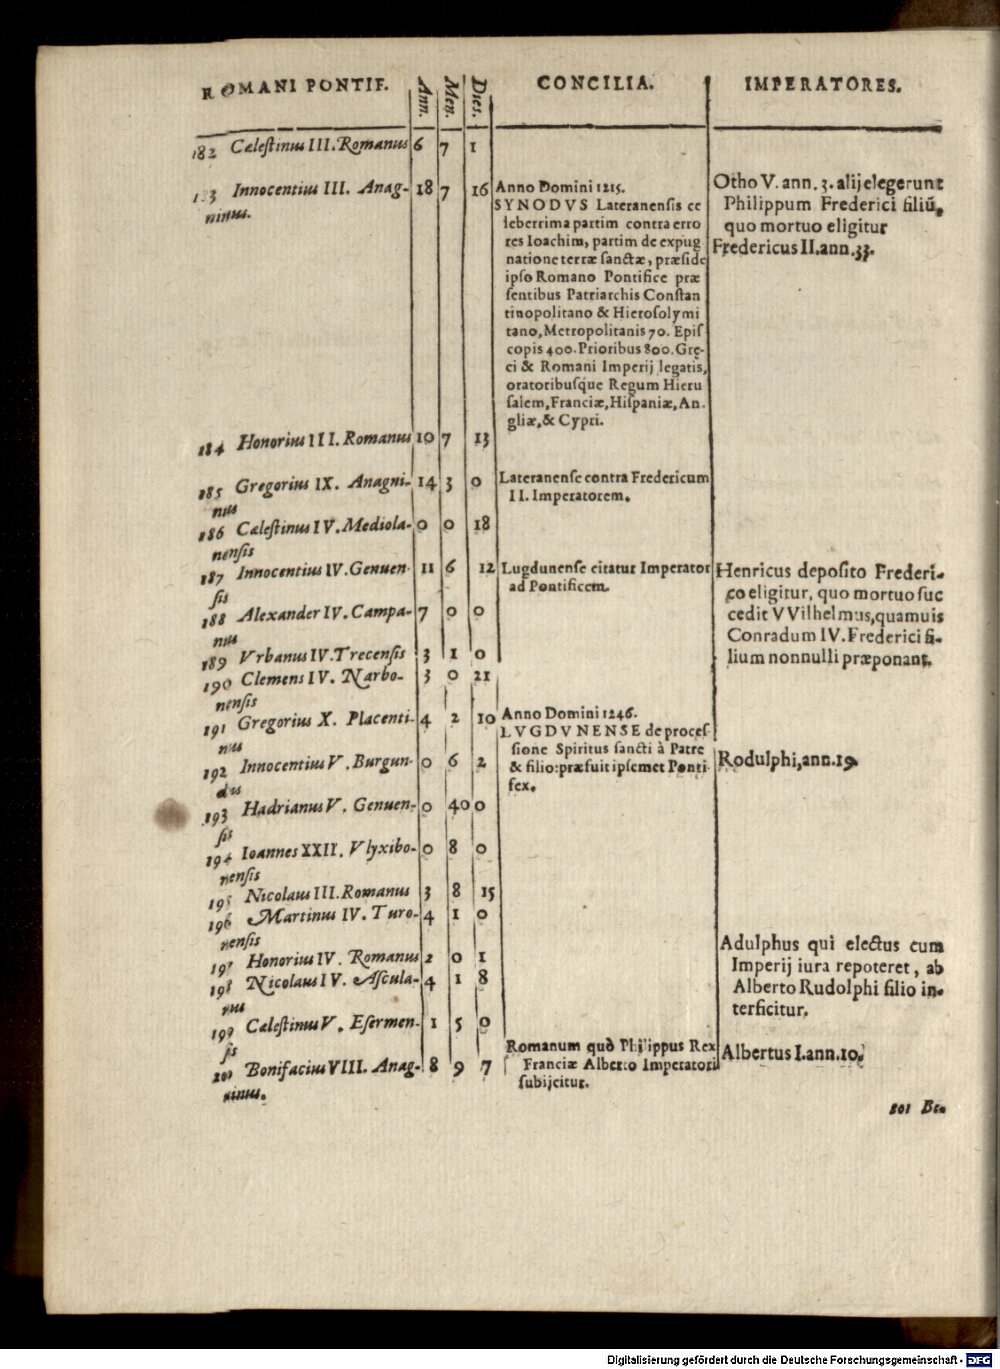 ROMANI PONTIF. Ann. Men. Dies. CONCILIA. IMPERATORES.
182 Cælestinus III. Romanus 6 7 1
183 Innocentius III. Anag- 18 7 16
ninus.
Anno Domini 1215.
SYNODVS Lateranensis ce
leberrima partim contra erro
res Ioachim, partim de expug
natione terræ sanctæ, præside
ipso Romano Pontifice præ
sentibus Patriarchis Constan
tinopolitano & Hierosolymi
tano, Metropolitanis 70. Epis
copis 400. Prioribus 800. Grę-
ci & Romani Imperij legatis,
oratoribusque Regum Hieru
salem, Franciæ, Hispaniæ, An-
gliæ, & Cypri.
Otho V. ann. 3. alij elegerunt
Philippum Frederici filiũ,
quo mortuo eligitur
Fredericus II. ann. 33.
184 Honorius III. Romanus 10 7 13
185 Gregorius IX. Anagni- 14 3 0
nus
Lateranense contra Fredericum
II. Imperatorem.
186 Cælestinus IV. Mediola- 0 0 18
nensis
187 Innocentius IV. Genuen 11 6 12
sis
Lugdunense citatur Imperator
ad Pontificem.
Henricus deposito Frederi-
co eligitur, quo mortuo suc
cedit VVilhelmus, quamuis
Conradum IV. Frederici fi-
lium nonnulli præponant.
188 Alexander IV. Campa- 7 0 0
nus
189 Vrbanus IV. Trecensis 3 1 0
190 Clemens IV. Narbo- 3 0 21
nensis
191 Gregorius X. Placenti- 4 2 10
nus
Anno Domini 1246.
LVGDVNENSE de proces-
sione Spiritus sancti à Patre
& filio: præfuit ipsemet Ponti-
fex.
192 Innocentius V. Burgun- 0 6 2
dus
Rodulphi, ann. 19.
193 Hadrianus V. Genuen- 0 40 0
sis
194 Ioannes XXII. Vlyxibo- 0 8 0
nensis
195 Nicolaus III. Romanus 3 8 15
196 Martinus IV. Turo- 4 1 0
nensis
197 Honorius IV. Romanus 2 0 1
198 Nicolaus IV. Ascula- 4 1 8
nus
Adulphus qui electus cum
Imperij iura repoteret, ab
Alberto Rudolphi filio in-
terficitur.
199 Cælestinus V. Esermen- 1 5 0
sis
200 Bonifacius VIII. Anag- 8 9 7
ninus.
Romanum quo Philippus Rex
Franciæ Alberto Imperatori
subijcitur.
Albertus I. ann. 10.
201 Be-
Digitalisierung gefördert durch die Deutsche Forschungsgemeinschaft - DFG